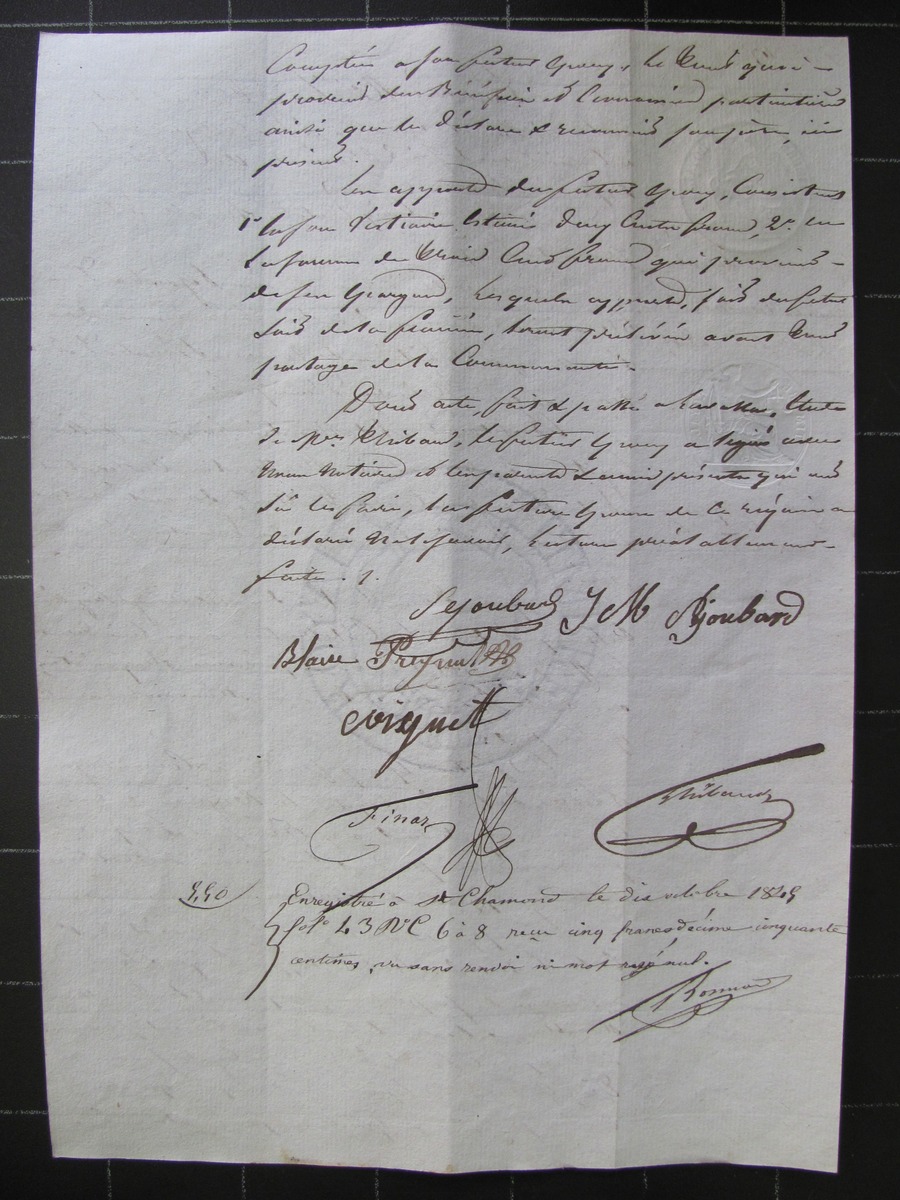 Comptés a son futur Epoux, le tout qui
provenu de Bénéfices et Economies particulières
ainsi que le déclare & reconnait son père, ici
présent.
Les apports du futur Epoux, Consistent
1° en son Vestiaire Estimé deux Cents francs, 2° en
la somme de Trois Cents francs qui provient
de ses Epargnes, lesquels apports, fait du futur
soit de la future, seront prélevés avant tout
partage de la Communauté.
Dont acte, fait & passé a Etude
de Me Thibaud, le futur Epoux a signé avec
nous Notaires et les parents & amis présents qui ont
sû le faire, la future Epouse de ce requise a
déclaré ne le savoir, lecture préalablement
faite.
Sejoubard J M Sjoubard
Blaise Preynat
coignet
Finaz
Thibaud
5,50
Enregistré à St Chamond le dix octobre 1845
fol° 43 R° C 6 à 8 reçu cinq francs décime cinquante
centimes, vu sans renvoi ni mot rayé nul.